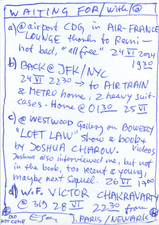 WAITING FOR/with/@
a) @airport CDG in AIR-FRANCE
LOUNGE thanks to Remi-
not bad, "all free" 24 VI 2014
1930
b) BACK @ JFK/NYC
24 VI 2230 → to AIRTRAIN
& METRO home, 2 heavy suit-
cases. Home @ 0130 25 VI
c) @ Westwood Gallery on BOWERY
"LOFT LAW" show & book
by JOSHUA CHARON. Videos
Joshua also interviewed me, but not
in the book, too recent & young,
maybe next sequel. 26 VI 1900
d) W.F. VICTOR CHAKRAVARTY
@ 319 28 VI 2230 from
PARIS/NEWARK